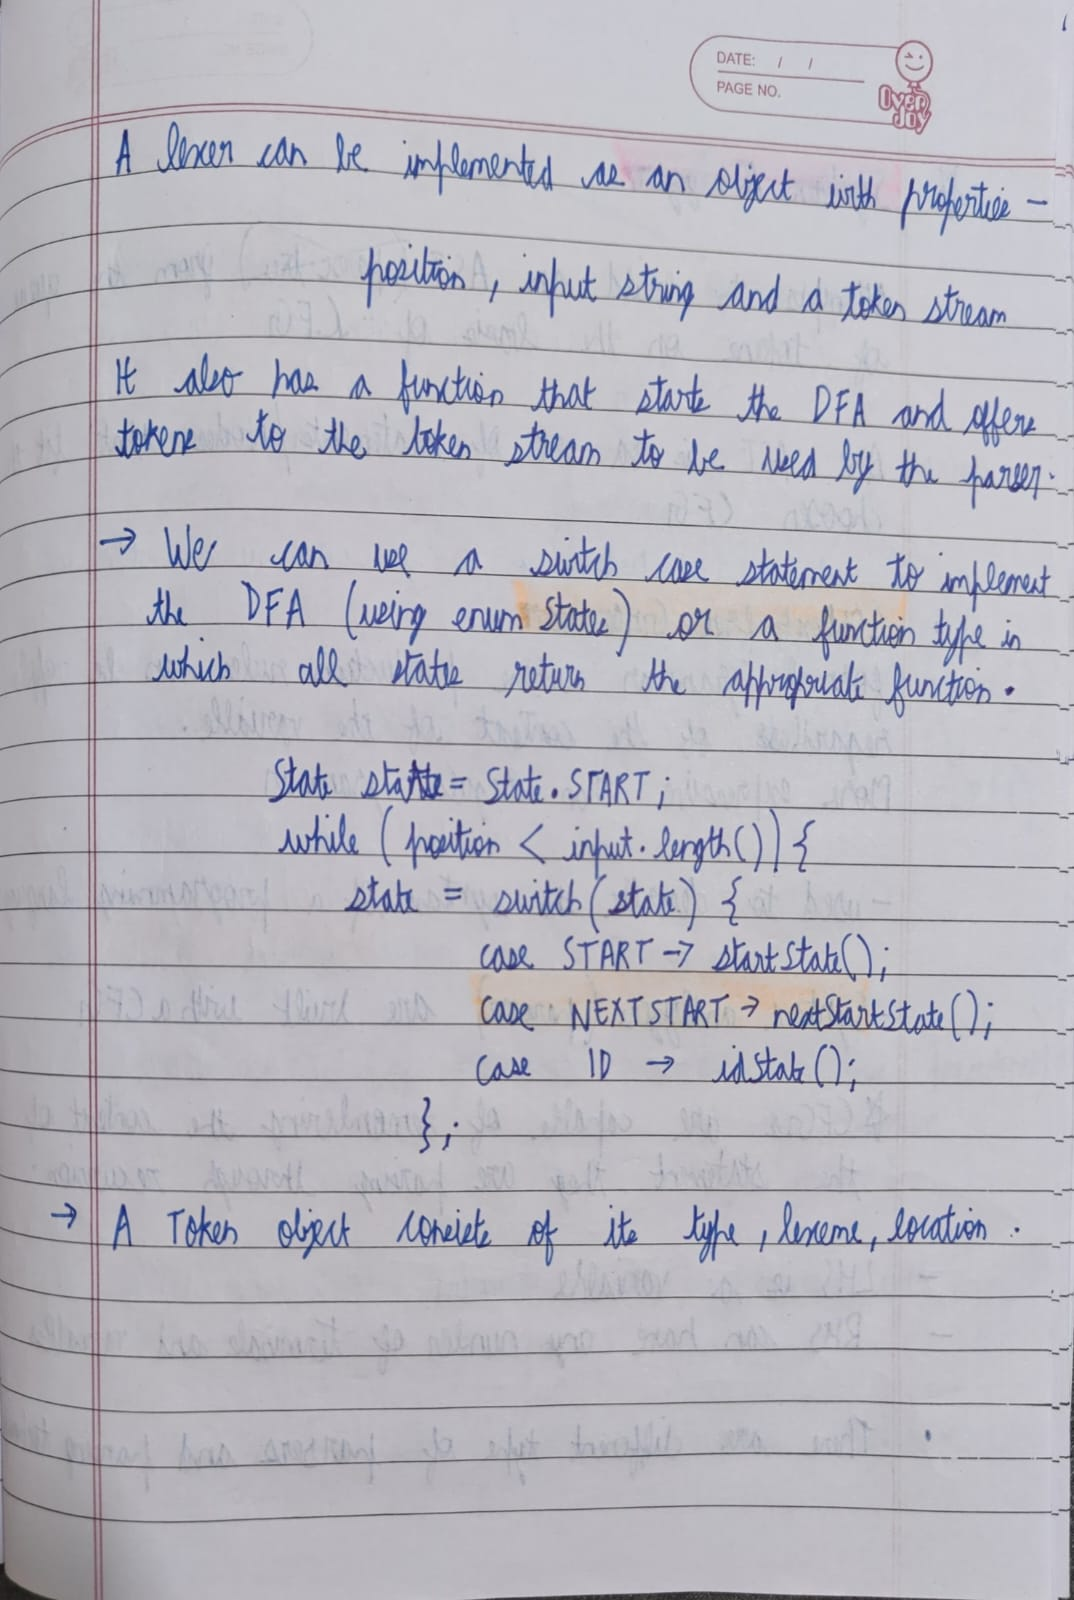 DATE: / /
PAGE NO.
Over
Joy
A lexer can be implemented as an object with properties –
position, input string and a token stream
It also has a function that starts the DFA and offers
tokens to the token stream to be used by the parser.
→ We can use a switch case statement to implement
the DFA (using enum States) or a function type in
which all states return the appropriate function.
State state = State.START;
while (position < input.length()) {
state = switch(state) {
case START → startState();
case NEXTSTART → nextStartState();
case ID → idState();
};
→ A Token object consists of its type, lexeme, location.